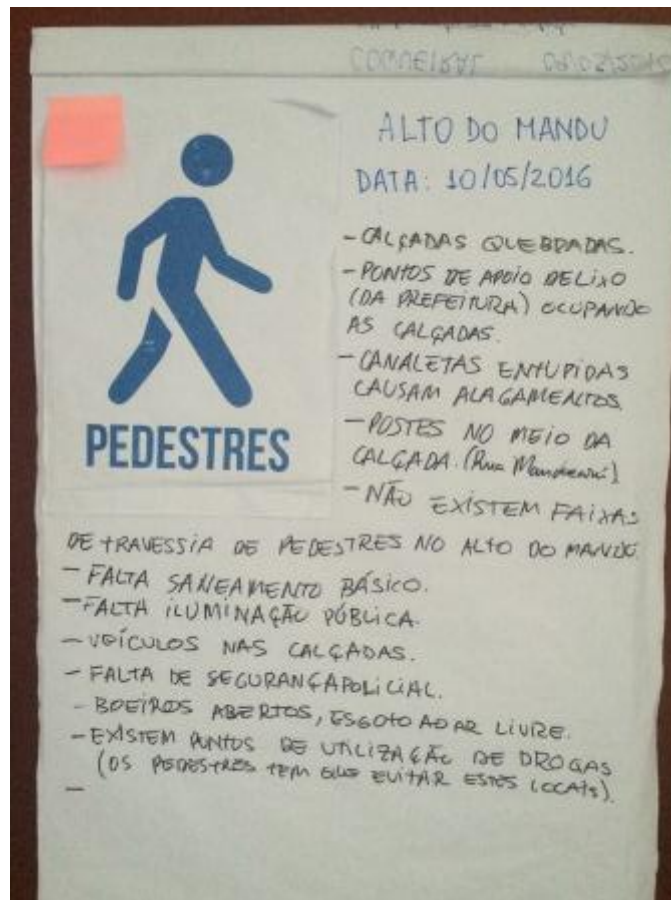 ALTO DO MANDU
DATA: 10/05/2016
PEDESTRES
- CALÇADAS QUEBRADAS.
- PONTOS DE APOIO DE LIXO
(DA PREFEITURA) OCUPANDO
AS CALÇADAS.
- CANALETAS ENTUPIDAS
CAUSAM ALAGAMENTOS.
- POSTES NO MEIO DA
CALÇADA. (Rua
- NÃO EXISTEM FAIXAS
DE TRAVESSIA DE PEDESTRES NO ALTO DO MANDÚ.
- FALTA SANEAMENTO BÁSICO.
- FALTA ILUMINAÇÃO PÚBLICA.
- VEÍCULOS NAS CALÇADAS.
- FALTA DE SEGURANÇA POLICIAL.
- BOEIROS ABERTOS, ESGOTO AO AR LIVRE.
- EXISTEM PONTOS DE UTILIZAÇÃO DE DROGAS
(OS PEDESTRES TEM QUE EVITAR ESTES LOCAIS).
-